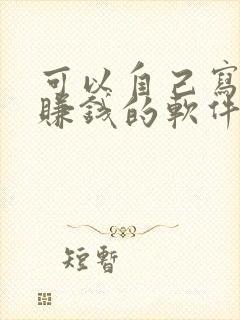 可以自己寫
賺錢的軟件
短暫